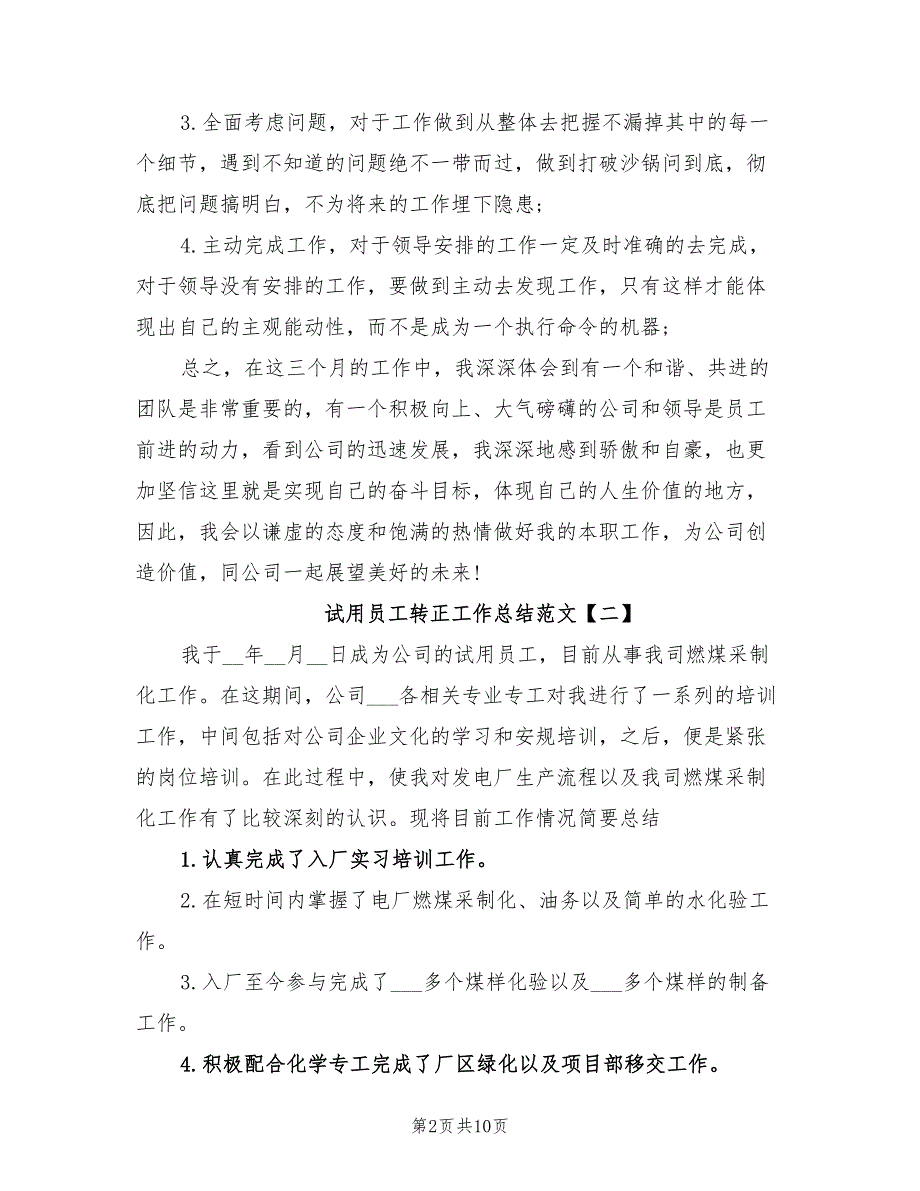 3.全面考虑问题，对于工作做到从整体去把握不漏掉其中的每一
个细节，遇到不知道的问题绝不一带而过，做到打破沙锅问到底，彻
底把问题搞明白，不为将来的工作埋下隐患;
4.主动完成工作，对于领导安排的工作一定及时准确的去完成，
对于领导没有安排的工作，要做到主动去发现工作，只有这样才能体
现出自己的主观能动性，而不是成为一个执行命令的机器;
总之，在这三个月的工作中，我深深体会到有一个和谐、共进的
团队是非常重要的，有一个积极向上、大气磅礴的公司和领导是员工
前进的动力，看到公司的迅速发展，我深深地感到骄傲和自豪，也更
加坚信这里就是实现自己的奋斗目标，体现自己的人生价值的地方，
因此，我会以谦虚的态度和饱满的热情做好我的本职工作，为公司创
造价值，同公司一起展望美好的未来!
试用员工转正工作总结范文【二】
我于__年__月__日成为公司的试用员工，目前从事我司燃煤采制
化工作。在这期间，公司___各相关专业专工对我进行了一系列的培训
工作，中间包括对公司企业文化的学习和安规培训，之后，便是紧张
的岗位培训。在此过程中，使我对发电厂生产流程以及我司燃煤采制
化工作有了比较深刻的认识。现将目前工作情况简要总结
1.认真完成了入厂实习培训工作。
2.在短时间内掌握了电厂燃煤采制化、油务以及简单的水化验工
作。
3.入厂至今参与完成了___多个煤样化验以及___多个煤样的制备
工作。
4.积极配合化学专工完成了厂区绿化以及项目部移交工作。
第2页共10页